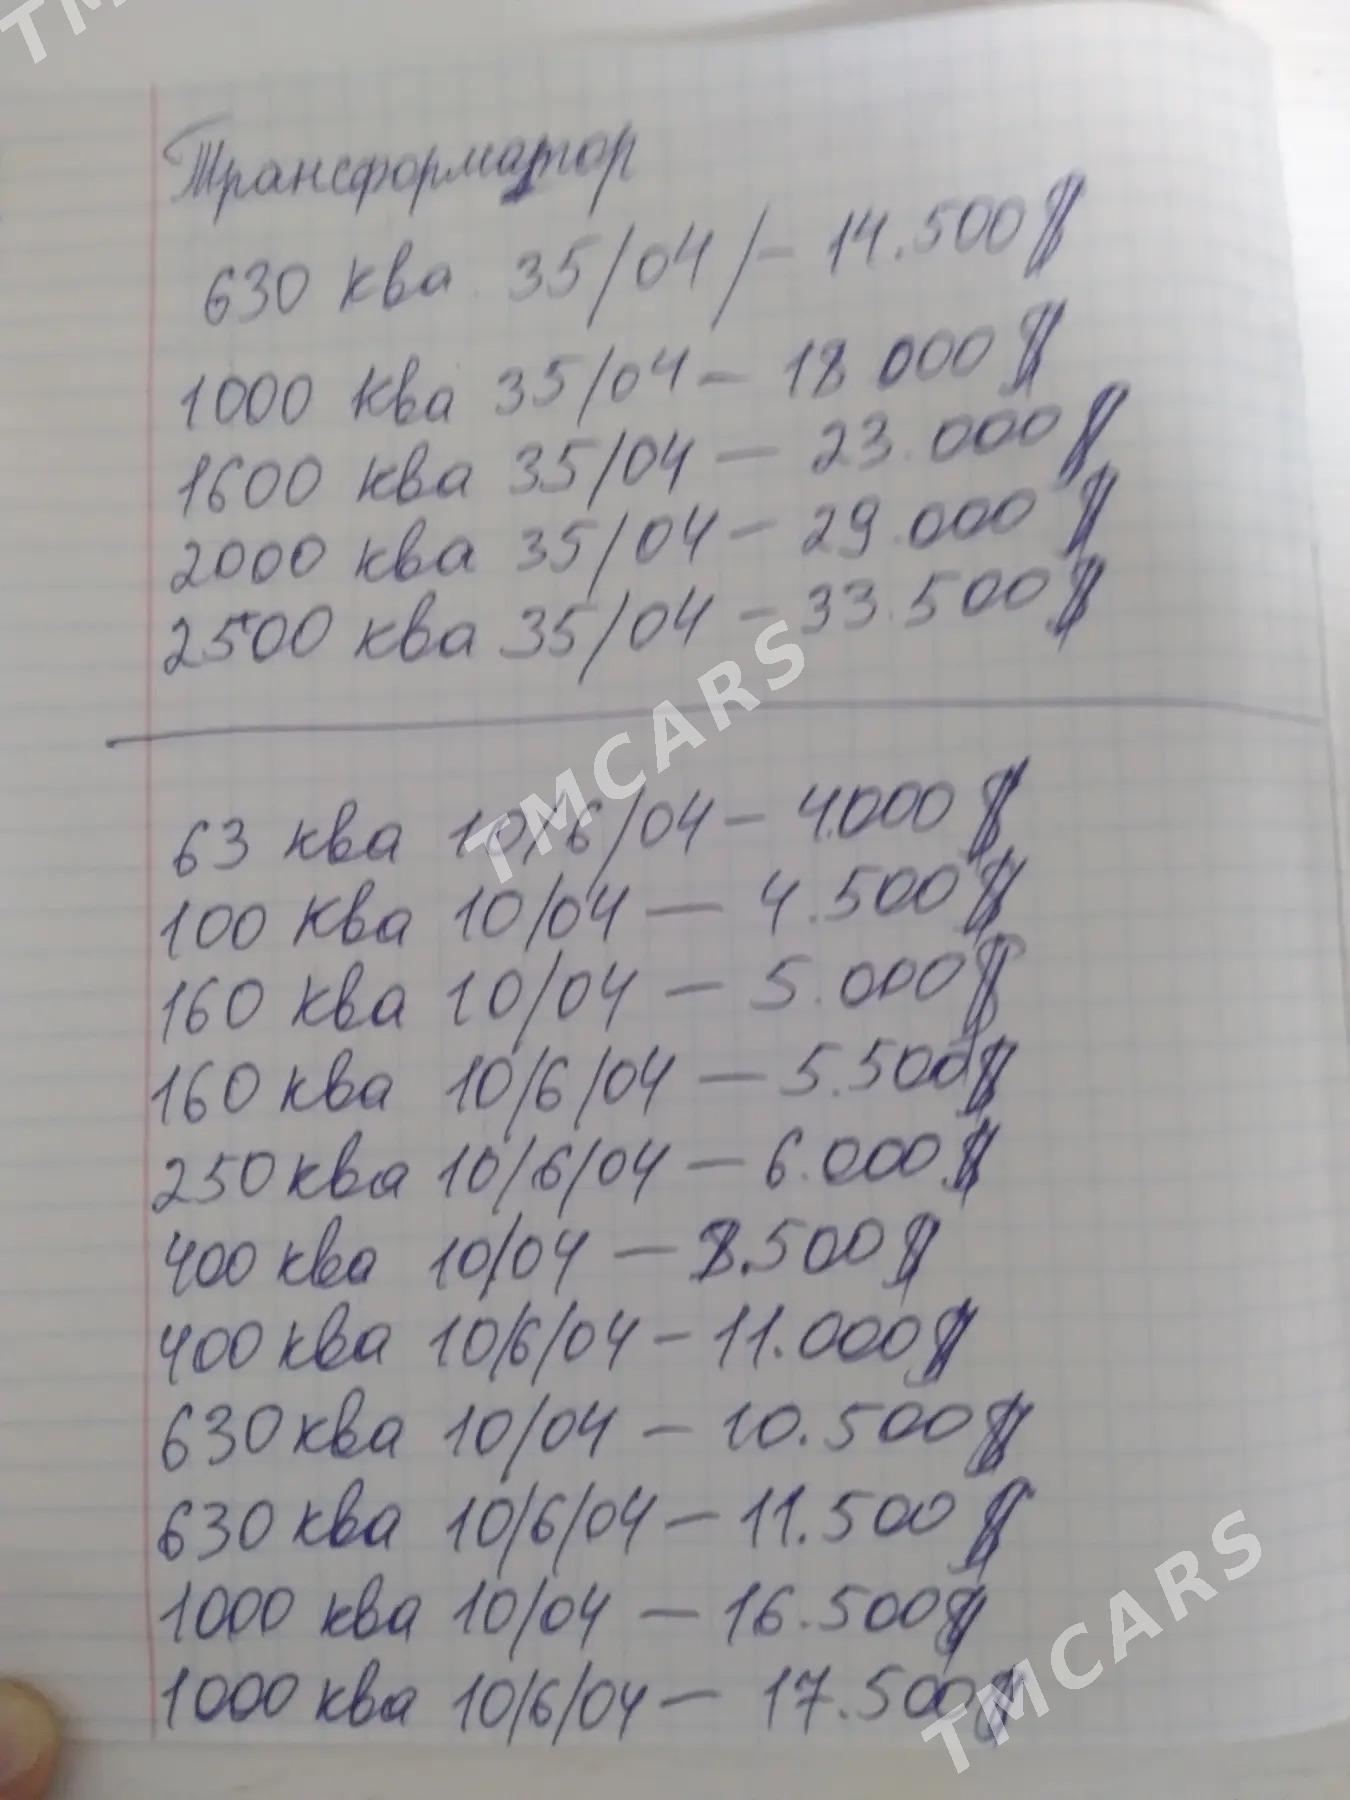 TMCARS
Трансформатор
630 ква 35/04/- 14.500$
1000 ква 35/04 - 18 000$
1600 ква 35/04 - 23.000$
2000 ква 35/04 - 29.000$
2500 ква 35/04 - 33.500$
TMCARS
63 ква 10/6/04 - 4.000$
100 ква 10/04 - 4.500$
160 ква 10/04 - 5.000$
160 ква 10/6/04 - 5.500$
250 ква 10/6/04 - 6.000$
400 ква 10/04 - 8.500$
400 ква 10/6/04 - 11.000$
630 ква 10/04 - 10.500$
630 ква 10/6/04 - 11.500$
1000 ква 10/04 - 16.500$
1000 ква 10/6/04 - 17.500$
TMCARS